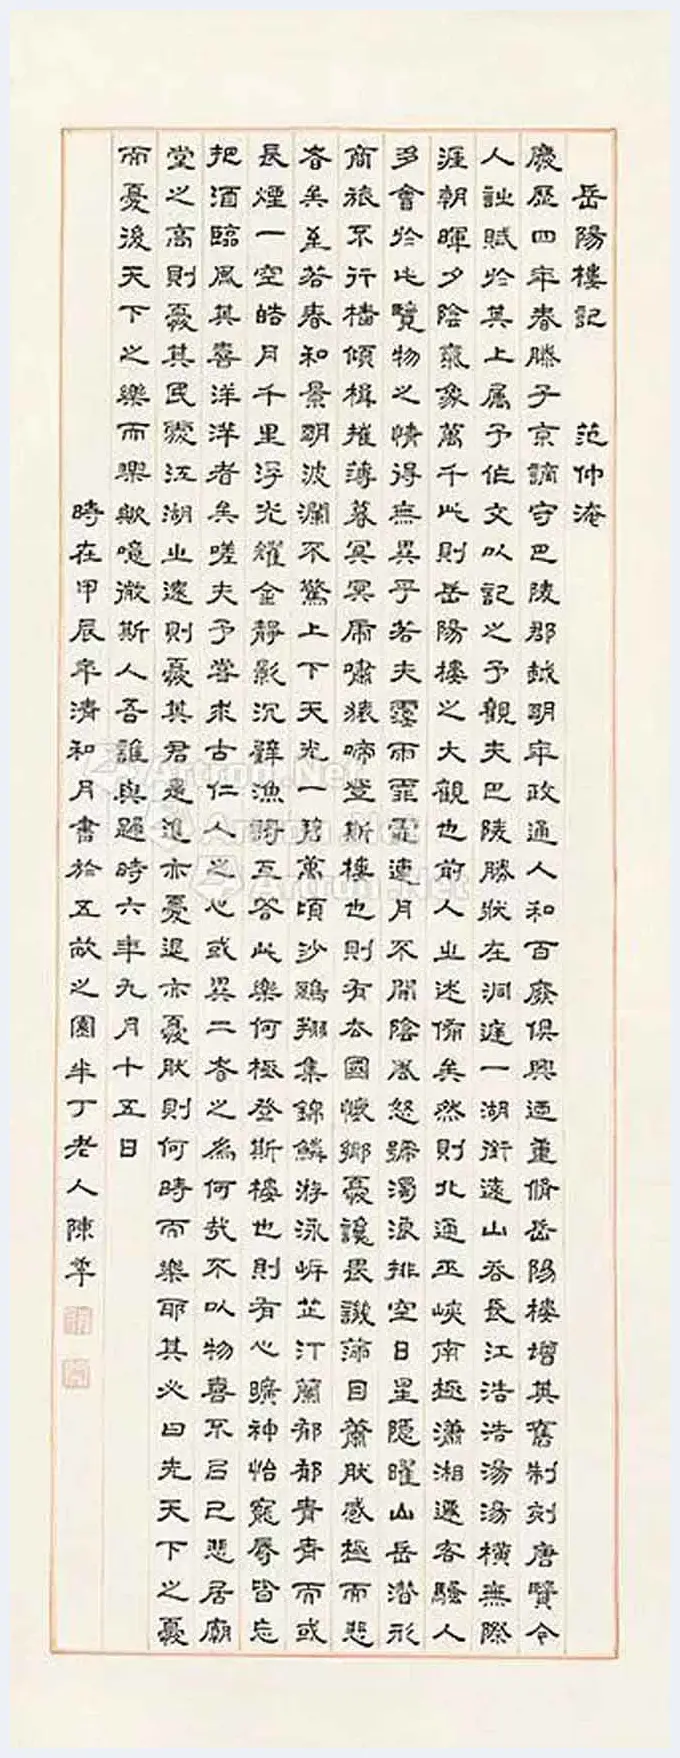 岳陽樓記 范仲淹
慶歷四年春滕子京謫守巴陵郡越明年政通人和百廢俱興迺重脩岳陽樓增其舊制刻唐賢今
人詩賦於其上属予作文以記之予觀夫巴陵勝狀在洞庭一湖銜遠山吞長江浩浩湯湯橫無際
涯朝暉夕陰氣象萬千此則岳陽樓之大觀也前人之述俻矣然則北通巫峽南極瀟湘遷客騷人
多會於此覽物之情得無異乎若夫霪雨霏霏連月不開陰風怒號濁浪排空日星隱曜山岳潛形
商旅不行檣傾楫摧薄暮冥冥虎嘯猿啼登斯樓也則有去國懷鄉憂讒畏譏滿目蕭然感極而悲
者矣至若春和景明波瀾不驚上下天光一碧萬頃沙鷗翔集錦鱗游泳岸芷汀蘭郁郁青青而或
長煙一空皓月千里浮光耀金靜影沉璧漁謌互答此樂何極登斯樓也則有心曠神怡寵辱皆忘
把酒臨風其喜洋洋者矣嗟夫予嘗求古仁人之心或異二者之為何哉不以物喜不以己悲居廟
堂之高則憂其民處江湖之遠則憂其君是進亦憂退亦憂然則何時而樂耶其必曰先天下之憂
而憂後天下之樂而樂歟噫微斯人吾誰與歸時六年九月十五日
時在甲辰年清和月書於五故之園半丁老人陳年
Artron.Net
Artron.Net
Artron.Net